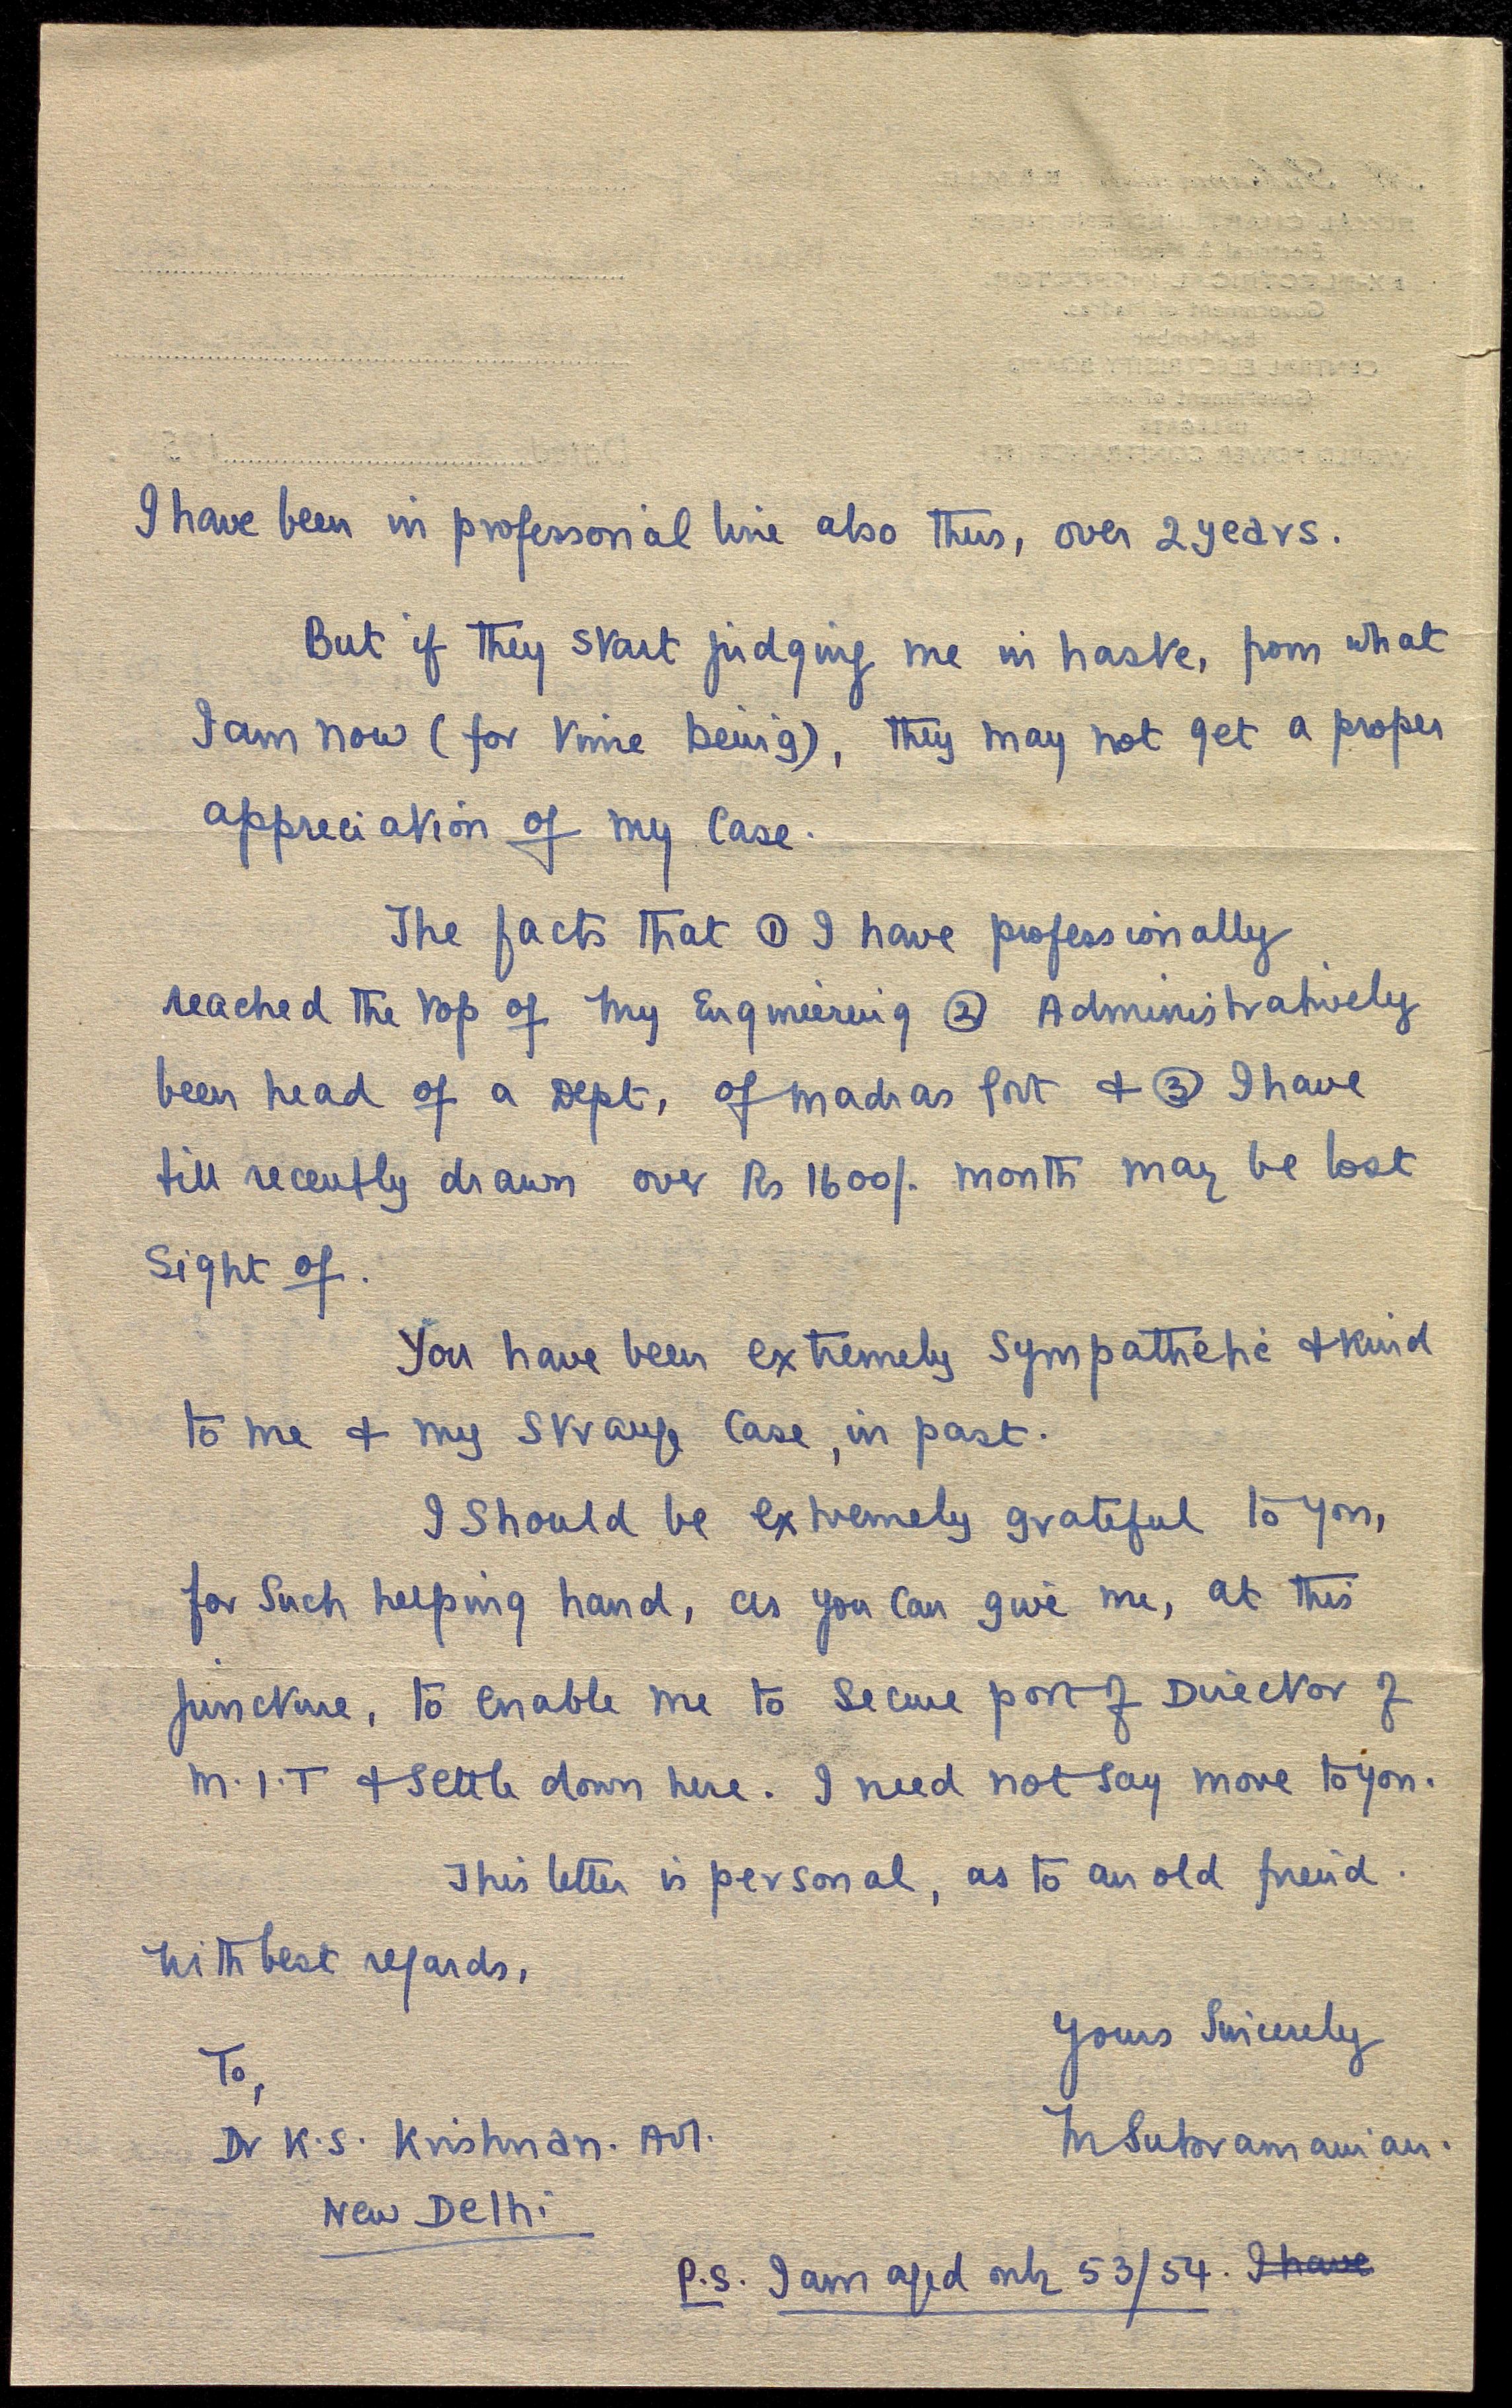 I have been in professonial line also thus, over 2 years.
But if they start judging me in haste, from what
I am now (for time being), they may not get a proper
appreciation of my case.
The facts that ① I have professionally
reached the top of my Engineering ② Administratively
been head of a Dept, of madras Govt & ③ I have
till recently drawn over Rs 1600/. month may be lost
sight of.
You have been extremely sympathetic & kind
to me & my strange case, in past.
I should be extremely grateful to you,
for such helping hand, as you can give me, at this
juncture, to enable me to secure post of Director of
M.I.T & settle down here. I need not say more to you.
This letter is personal, as to an old friend.
With best regards,
Yours Sincerely
M Subramanian.
To,
Dr K.S. Krishnan. Avl.
New Delhi
P.S. I am aged only 53/54. I have